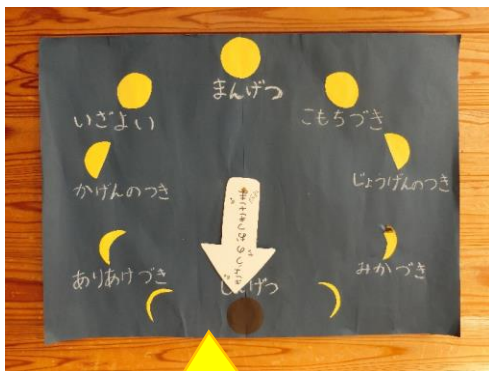 まんげつ
いざよい
こもちづき
かげんのつき
じょうげんのつき
ありあけづき
みかづき
しんげつ